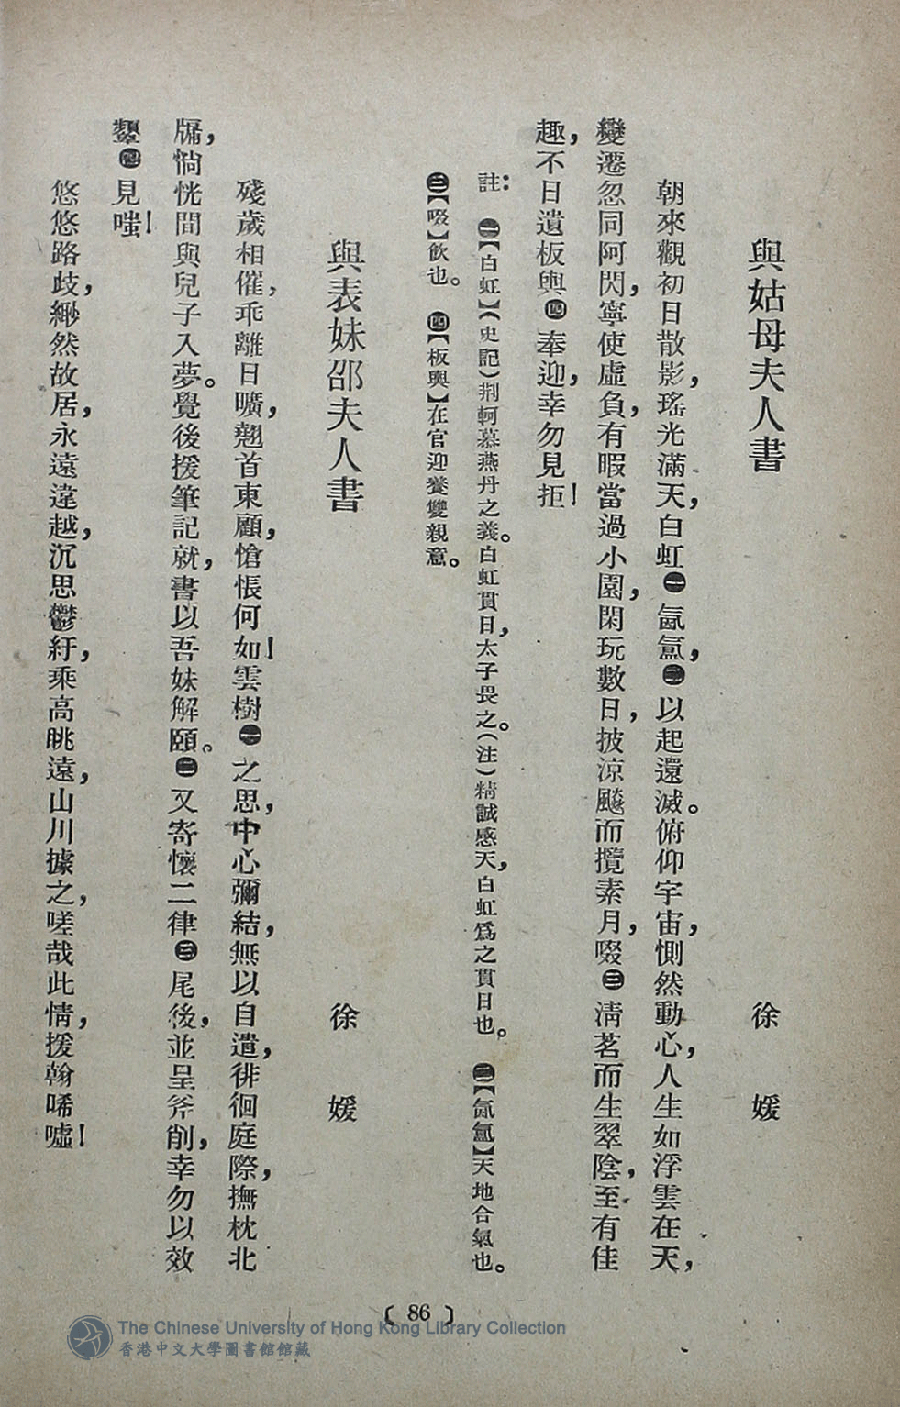 與姑母夫人書 徐 媛
朝來觀初日散影，瑤光滿天，白虹㊀氤氳，㊁以起還滅。俯仰宇宙，惻然動心，人生如浮雲在天，
變遷忽同阿閃，寧使虛負，有暇當過小園，閑玩數日，披涼飈而攬素月，啜㊂淸茗而生翠陰，至有佳
趣，不日遺板輿㊃奉迎，幸勿見拒！
註：㊀【白虹】（史記）荆軻慕燕丹之義。白虹貫日，太子畏之。（注）精誠感天，白虹爲之貫日也。㊁【氤氳】天地合氣也。
㊂【啜】飲也。㊃【板輿】在官迎養雙親意。
與表妹邵夫人書 徐 媛
殘歲相催，乖離日曠，翹首東顧，愴悵何如！雲樹㊀之思，中心彌結，無以自遣，徘徊庭際，撫枕北
牖，惝恍間與兒子入夢。覺後援筆記就，書以吾妹解頤。㊁又寄懷二律㊂尾後，並呈斧削，幸勿以效
顰㊃見嗤！
悠悠路歧，緲然故居，永遠違越，沉思鬱紆，乘高眺遠，山川據之，嗟哉此情，援翰唏噓！
( 86 )
The Chinese University of Hong Kong Library Collection
香港中文大學圖書館館藏